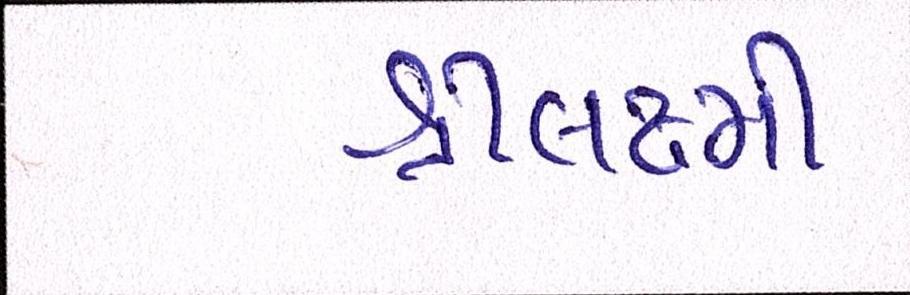 શ્રીલક્ષ્મી